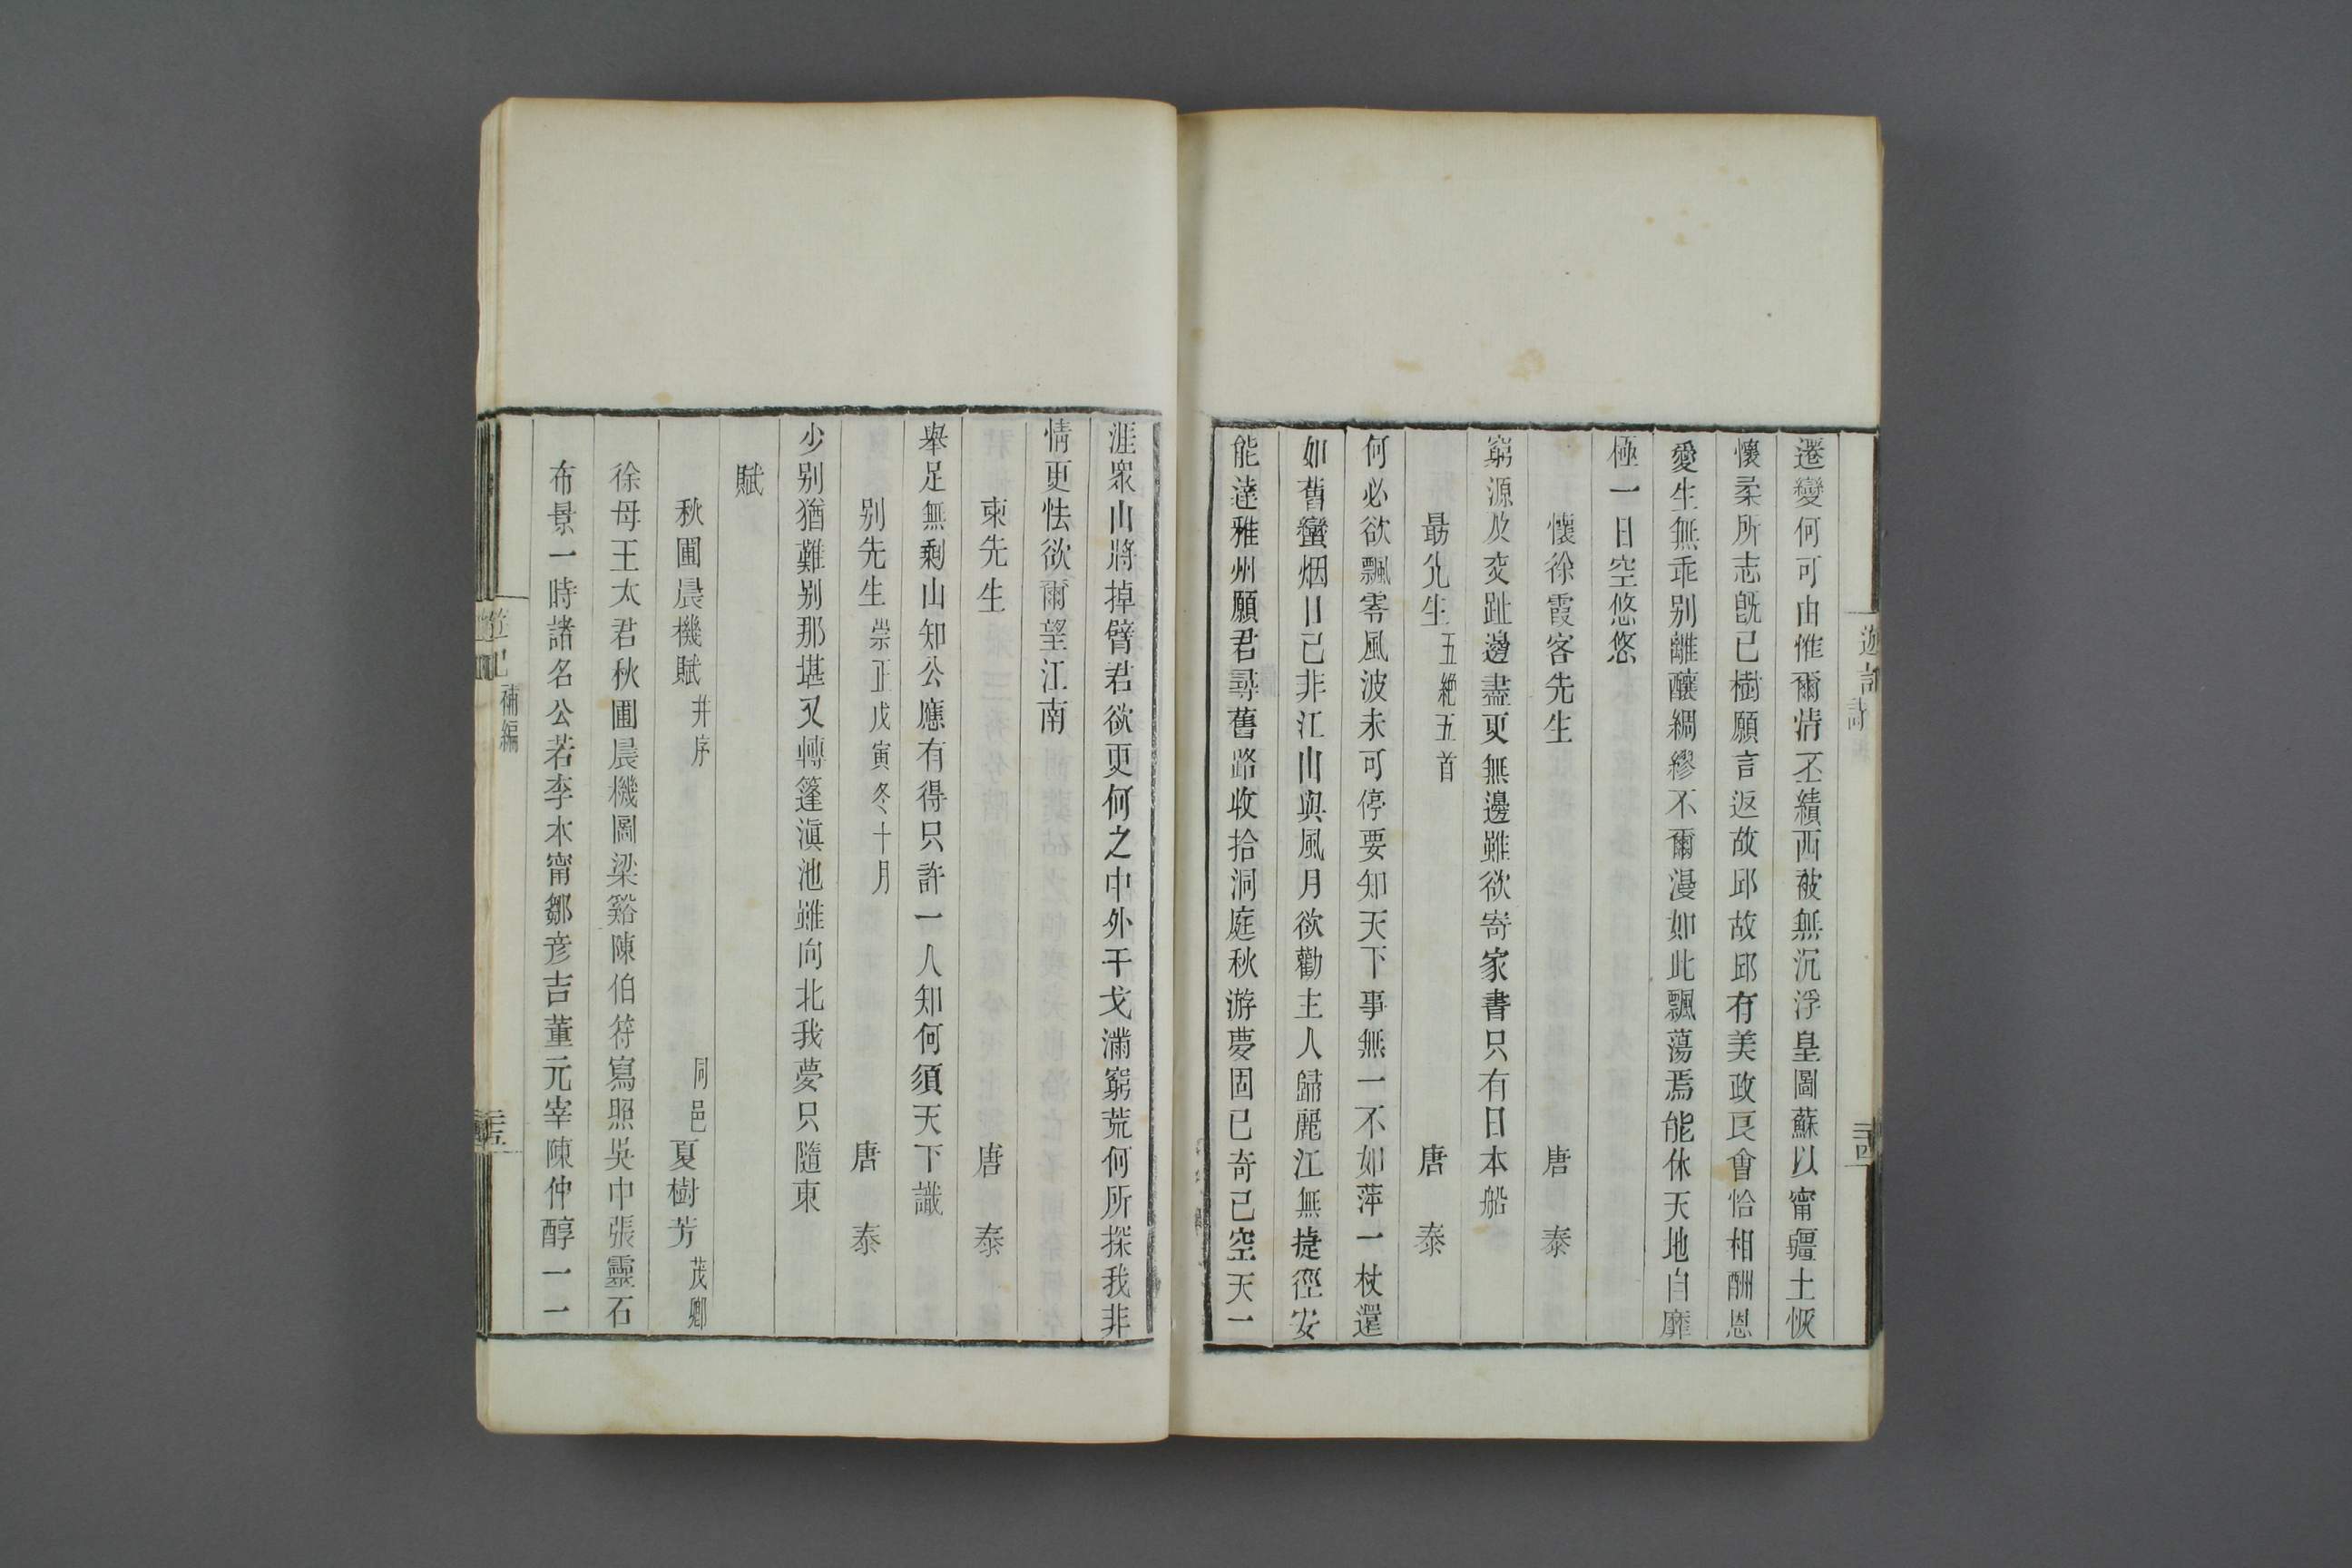 遷變何可由惟爾情丕績西被無沉浮皇圖蘇以甯疆土恢
懷柔所志旣已樹願言返故邱故邱有美政良會恰相酬恩
愛生無乖别離釀綢繆不爾漫如此飄蕩焉能休天地自靡
極一日空悠悠
懷徐霞客先生 唐泰
窮源及交趾邊盡更無邊雖欲寄家書只有日本船
勗先生 五絶五首 唐泰
何必欲飄零風波未可停要知天下事無一不如萍一杖還
如舊蠻烟日已非江山與風月欲勸主人歸麗江無捷徑安
能達雅州願君尋舊路收拾洞庭秋游夢固已奇已空天一
涯衆山將掉臂君欲更何之中外干戈滿窮荒何所探我非
情更怯欲爾望江南
柬先生 唐泰
舉足無剩山知公應有得只許一人知何須天下識
别先生 崇正戊寅冬十月 唐泰
少别猶難别那堪又轉篷滇池雖向北我夢只隨東
賦
秋圃晨機賦 并序 同邑夏樹芳 茂卿
徐母王太君秋圃晨機圖梁谿陳伯符寫照吳中張靈石
布景一時諸名公若李本甯鄒彥吉董元宰陳仲醇一一
補編